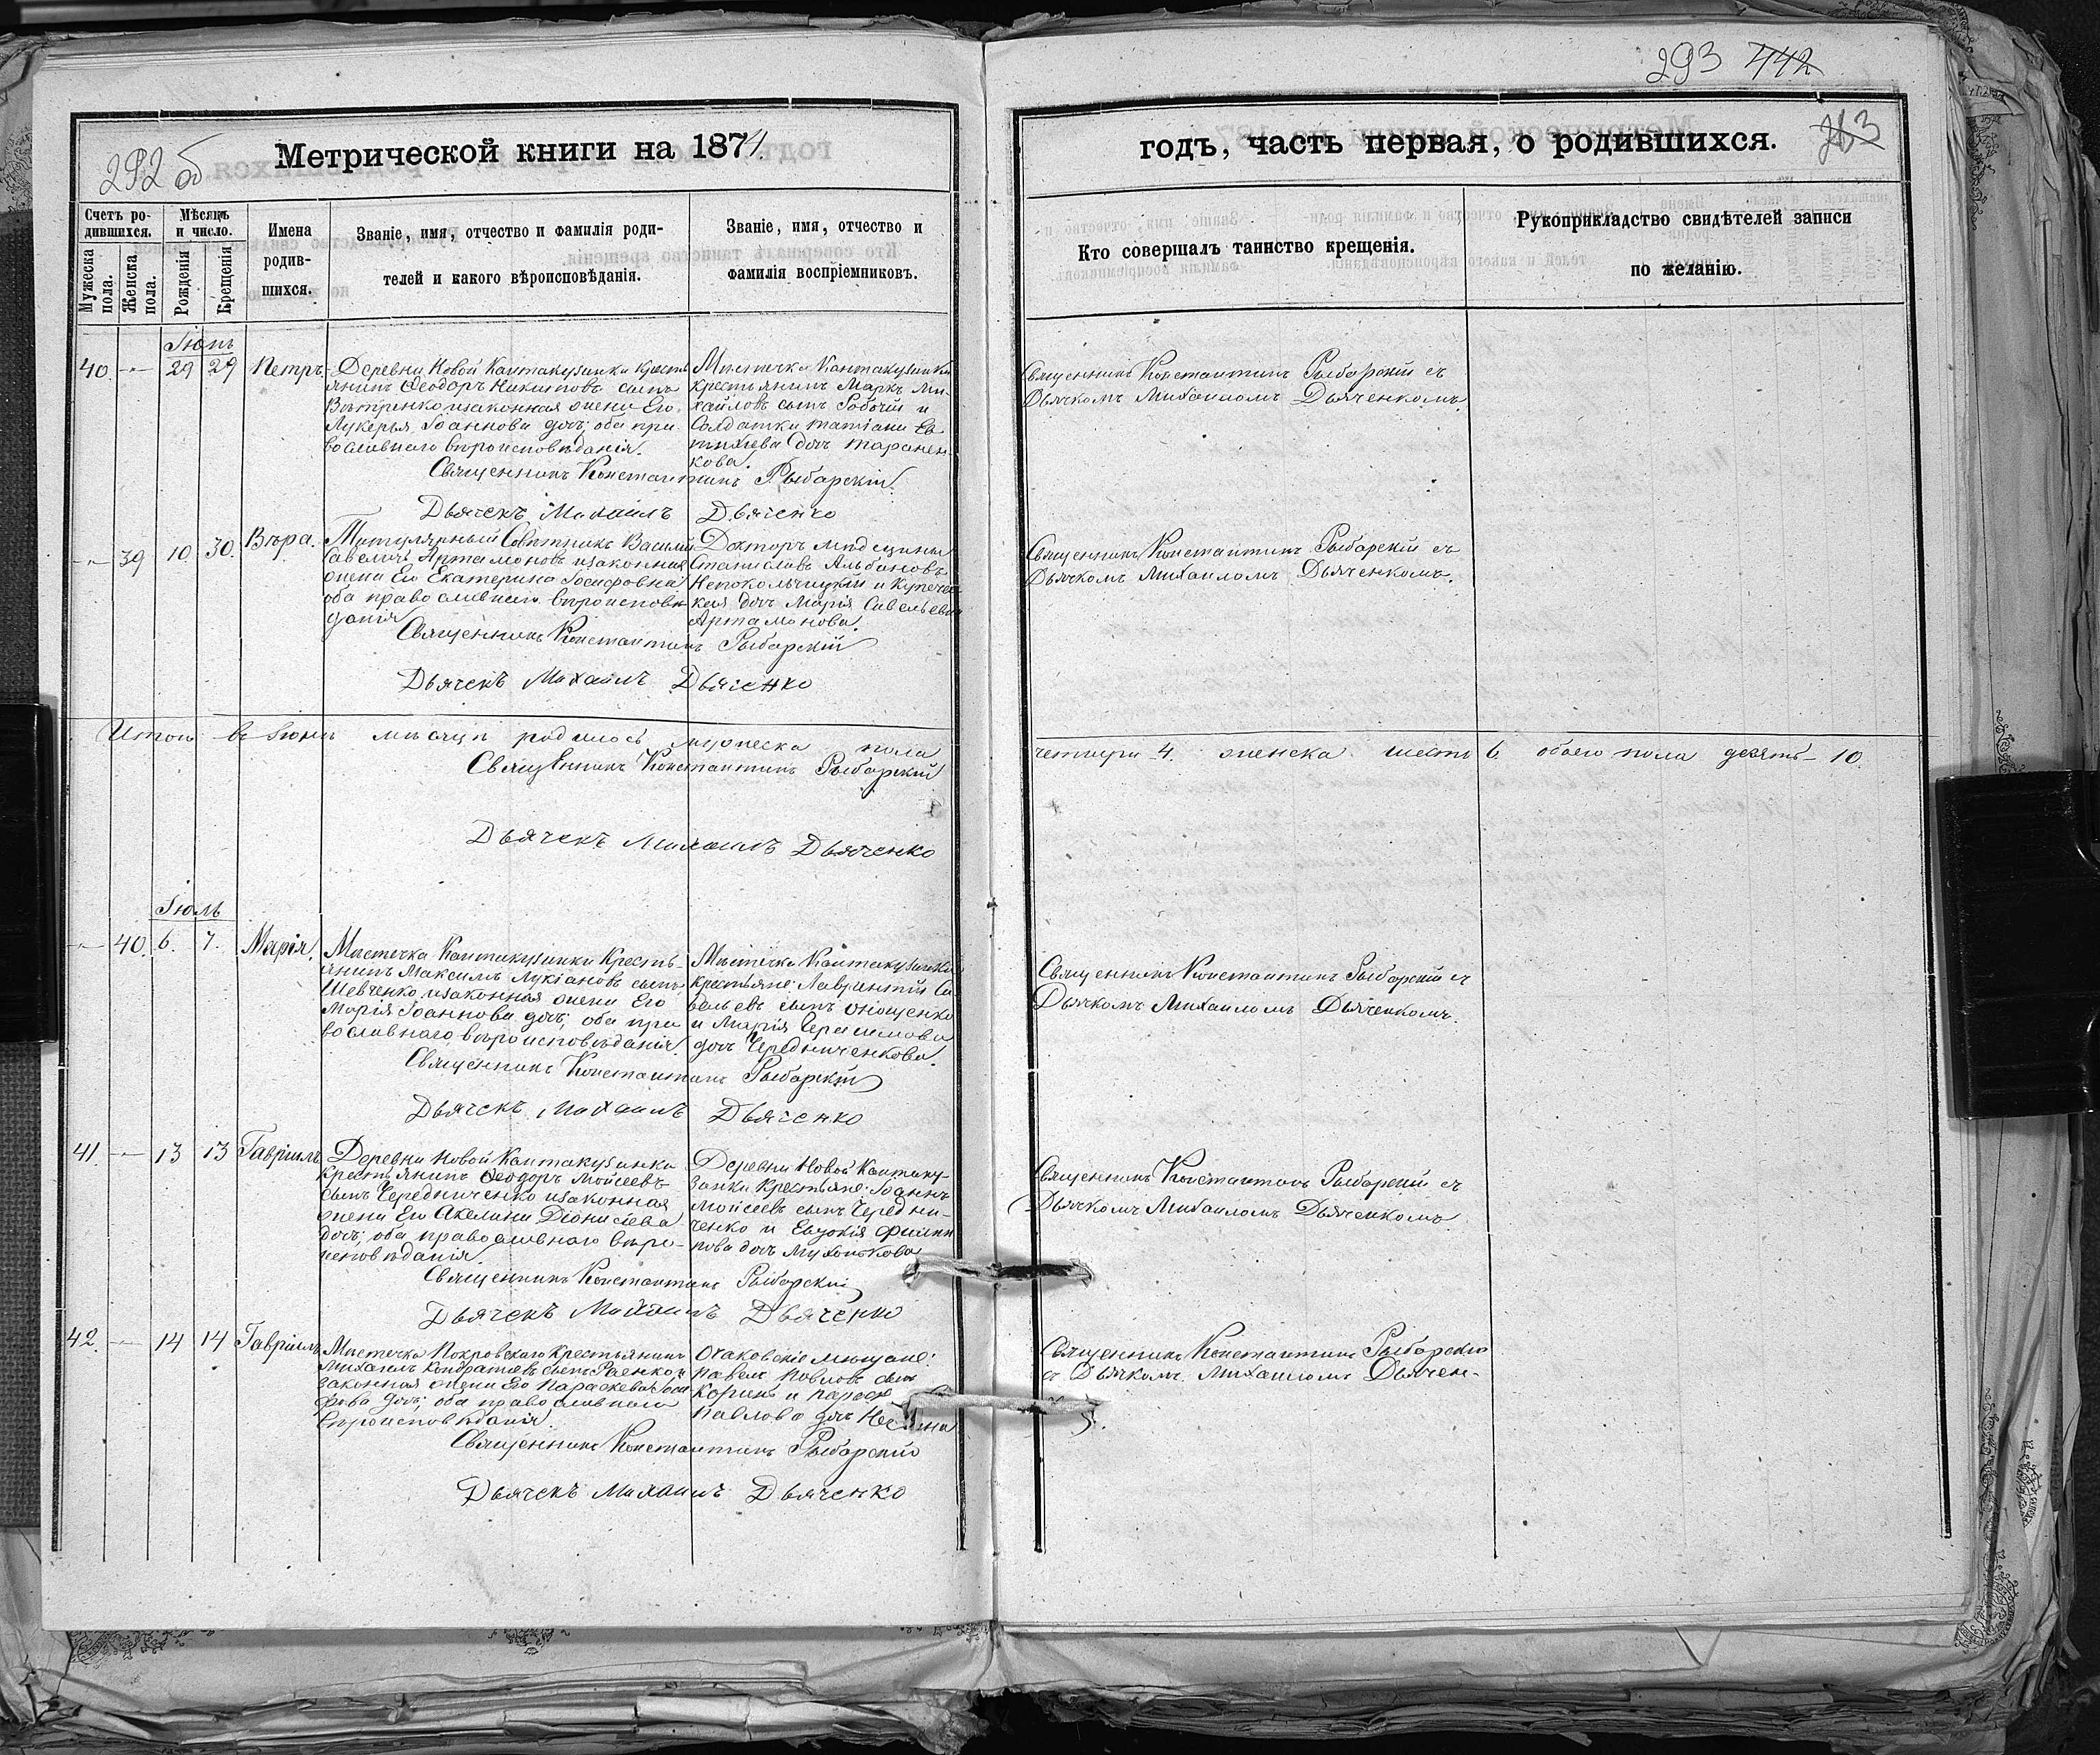 293 442
292 об
Метрической книги на 1871.
годъ, часть первая, о родившихся.
Счетъ ро-
дившихся.
Мѣсяцъ
и число.
Мужеска
пола.
Женска
пола.
Рожденія
Крещенія
Имена
родив-
шихся.
Званіе, имя, отчество и фамилія роди-
телей и какого вѣроисповѣданія.
Званіе, имя, отчество и
фамилія воспріемниковъ.
Кто совершалъ таинство крещенія.
Рукоприкладство свидѣтелей записи
по желанію.
Іюнь
40. -"- 29 29 Петръ.
Деревни Новой Кантакузинки кресть
янинъ Ѳеодоръ Никитовъ сынъ
Вѣтренко изаконная жена Его
Лукерья Іоаннова дочь; оба пра
вославнаго вѣроисповѣданія.
Мѣстечка Кантакузинки
крестьянинъ Маркъ Ми-
хайловъ сынъ Робочій и
Солдатка Татіана Ев
тихіева дочь Таранен-
кова.
Священникъ Константинъ Рыбарскій съ
Дьячкомъ Михаиломъ Дьяченкомъ.
Священникъ Константинъ Рыбарскій.
Дьячекъ Михаилъ Дьяченко
-"- 39 10. 30. Вѣра.
Титулярный Совѣтникъ Василій
Савеличъ Артамоновъ изаконная
жена Его Екатерина Іосифовна
оба православнаго вѣроисповѣ
данія
Докторъ медецины
Станиславъ Альбиновъ
Непокольчицкій и купечес
кая дочь Марія Савельевна
Артамонова.
Священникъ Константинъ Рыбарскій съ
Дьячкомъ Михаиломъ Дьяченкомъ.
Священникъ Константинъ Рыбарскій
Дьячекъ Михаилъ Дьяченко
Итого въ Іюнѣ мѣсяцѣ родилось мужеска пола
четыри 4. женска шесть 6 обоего пола десять - 10.
Священникъ Константинъ Рыбарскій
Дьячекъ Михаилъ Дьяченко
Іюль
-"- 40. 6. 7. Марія.
Мѣстечка Кантакузинки Кресть-
янинъ Максимъ Лукіановъ сынъ
Шевченко изаконная жена Его
Марія Іоаннова дочь; оба пра
вославнаго вѣроисповѣданія.
Мѣстечка Кантакузинки
крестьяне: Лаврентій Са
вельевъ сынъ Онощенко
и Марія Герасимова
дочь Чередниченкова.
Священникъ Константинъ Рыбарскій съ
Дьячкомъ Михаиломъ Дьяченкомъ.
Священникъ Константинъ Рыбарскій
Дьячекъ Михаилъ Дьяченко
41. -"- 13 13 Гавріилъ.
Деревни Новой Кантакузинки
Крестьянинъ Ѳеодоръ Моисеевъ
сынъ Чередниченко изаконная
жена Его Акелина Діонисіева
дочь; оба православнаго вѣро-
исповѣданія.
Деревни Новой Кантаку-
зинки Крестьяне: Іоаннъ
Моисеевъ сынъ Чередни-
ченко и Евдокія Филип
пова дочь
Священникъ Константинъ Рыбарскій съ
Дьячкомъ Михаиломъ Дьяченкомъ.
Священникъ Константинъ Рыбарскій
Дьячекъ Михаилъ Дьяченко
42. -"- 14 14 Гавріилъ.
Мѣстечка Покровскаго Крестьянинъ
Михаилъ Кондратіевъ сынъ Раенко и
законная жена Его Параскева Іоси
фова дочь; оба православнаго
вѣроисповѣданія.
Очаковскіе мѣщане:
Павелъ Павловъ сынъ
и
Павлова дочь
Священникъ Константинъ Рыбарскій
съ Дьячкомъ Михаиломъ Дьячен-
Священникъ Константинъ Рыбарскій
Дьячекъ Михаилъ Дьяченко